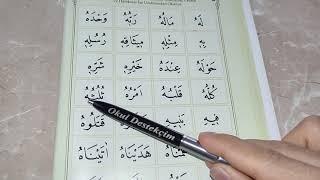 لَهُ مَالُهُ رَبُّهُ وَحْدَهُ
بِهِ مِثْلِهِ مِيثَاقِهِ رُسُلِهِ
حَوْلَهُ عِنْدَهُ خَيْرِهِ شَرِّهِ
كُلُّهُ قَلْبُهُ اَمْرُهُ ثُلُثَهُ
فِيهِ بَنِيهِ قَتَلُوهُ
هَدَيْنَاهُ اٰتَيْنَاهُ
Okul Destekçim